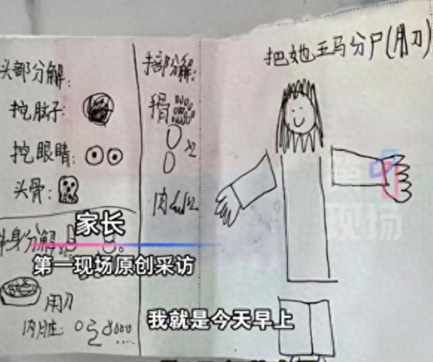 头部分解:
挖脑子:
挖眼睛:
头骨:
半身分解:
用刀
内脏:
手部分解:
骨
×2
肉
把她五马分尸(用刀)
现场
家长
第一现场原创采访
我就是今天早上